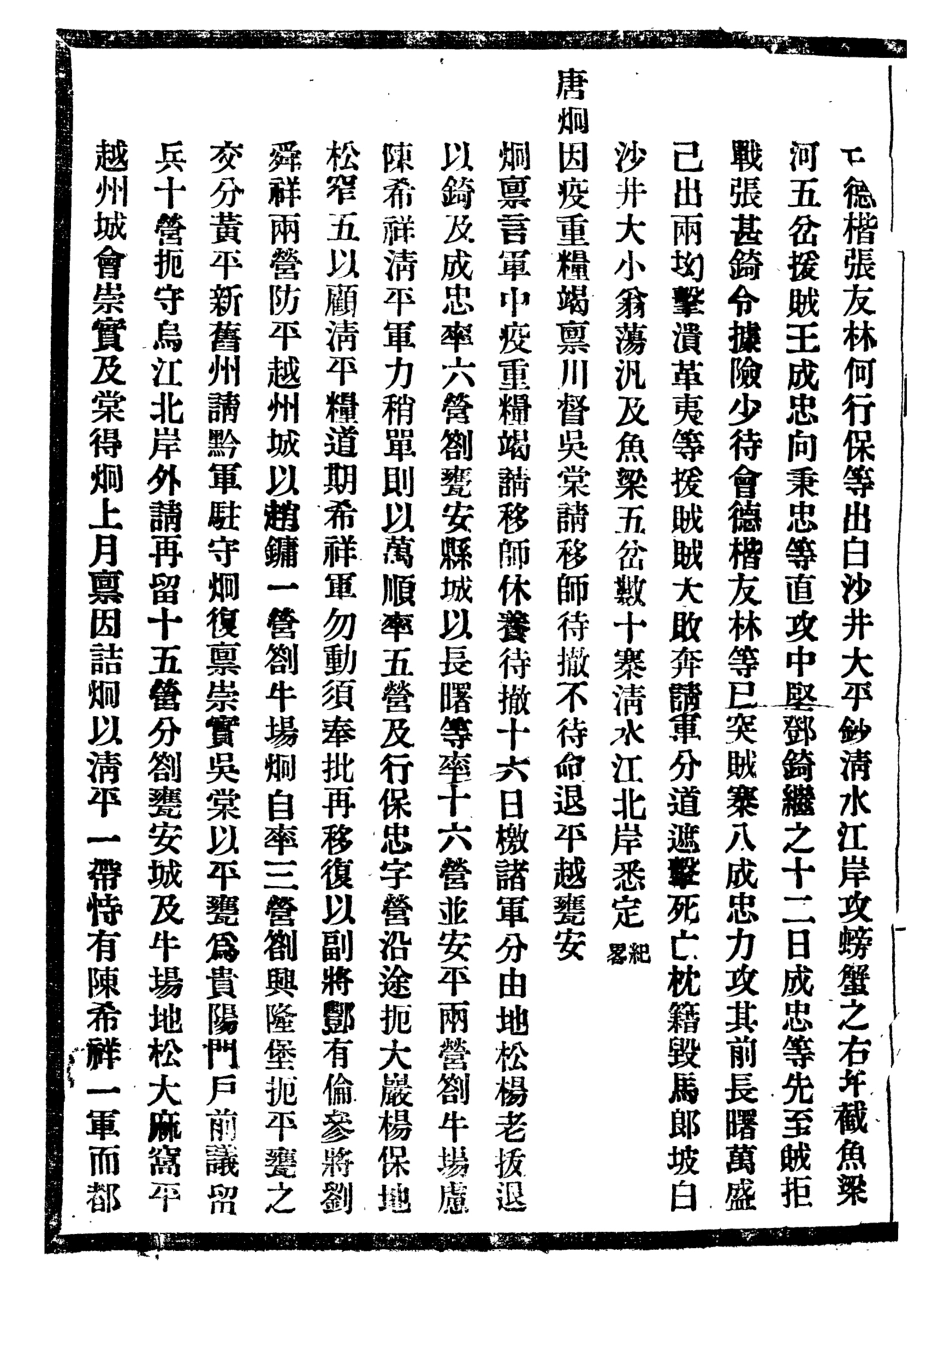 德楷張友林何行保等出白沙井大平鈔清水江岸攻螃蟹之右并截魚梁
河五岔援賊王成忠向秉忠等直攻中堅鄧錡繼之十二日成忠等先至賊拒
戰張甚錡令據險少待會德楷友林等已突賊寨八成忠力攻其前長曙萬盛
己出兩㘭擊潰革夷等援賊賊大敗奔請軍分道遮擊死亡枕籍毀馬郎坡白
沙井大小翁蕩汎及魚梁五岔數十寨清水江北岸悉定紀畧
唐炯因疫重糧竭稟川督吳棠請移師待撤不待命退平越甕安
炯稟言軍中疫重糧竭請移師休養待撤十六日檄諸軍分由地松楊老拔退
以錡及成忠率六營劄甕安縣城以長曙等率十六營並安平兩營劄牛場慮
陳希祥清平軍力稍單則以萬順率五營及行保忠字營沿途扼大巖楊保地
松窄五以顧清平糧道期希祥軍勿動須奉批再移復以副將酆有倫參將劉
舜祥兩營防平越州城以趙鏞一營劄牛場炯自率三營劄興隆堡扼平甕之
交分黃平新舊州請黔軍駐守炯復稟崇實吳棠以平甕爲貴陽門戶前議留
兵十營扼守烏江北岸外請再留十五營分劄甕安城及牛場地松大麻窩平
越州城會崇實及棠得炯上月稟因詰炯以清平一帶恃有陳希祥一軍而都